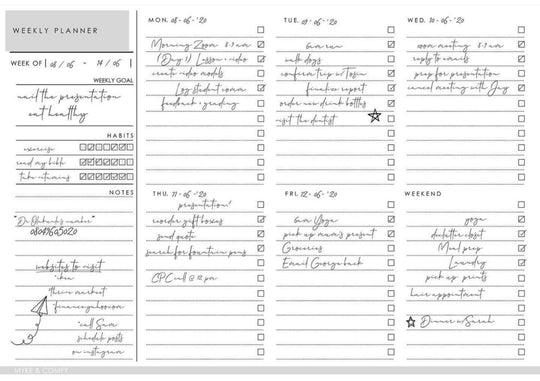 WEEKLY PLANNER
WEEK OF 08/06 - 14/06
WEEKLY GOAL
nail the presentation
eat healthy
HABITS
exercise
read my bible
take vitamins
NOTES
"Dr number"
websites to visit
ikea
thrive market
finance.yahoo.com
call Sam
schedule posts
on instagram
MON. 08-06-'20
Morning Zoom 8-9am
(Day 1) Lesson + video
create video models
Log student comm
feedback + grading
TUE. 09-06-'20
6am run
walk dogs
confirm trip w Tosin
finalize report
order new drink bottles
visit the dentist
WED. 10-06-'20
zoom meeting 8-9am
reply to emails
prep for presentation
cancel meeting with Jay
THU. 11-06-'20
presentation!
reorder gift boxes
send quote
search for fountain pens
CPC call @ 12 pm
FRI. 12-06-'20
6am Yoga
pick up mum's present
Groceries
Email George back
WEEKEND
yoga
declutter closet
Meal prep
Laundry
pick up prints
hair appointment
Dinner w Sarah
MYKE & COMFY